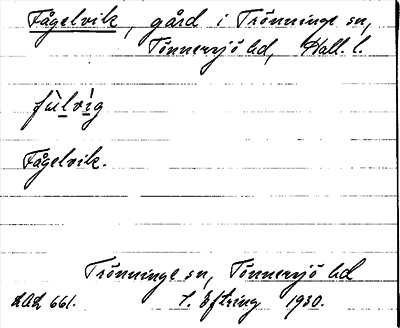 Fågelvik, gård i Trönninge sn,
Tönnersjö hd, Hall. l.
fúlvìg
Fågelvik.
Trönninge sn, Tönnersjö hd
LAL 661. J. Öfring 1930.